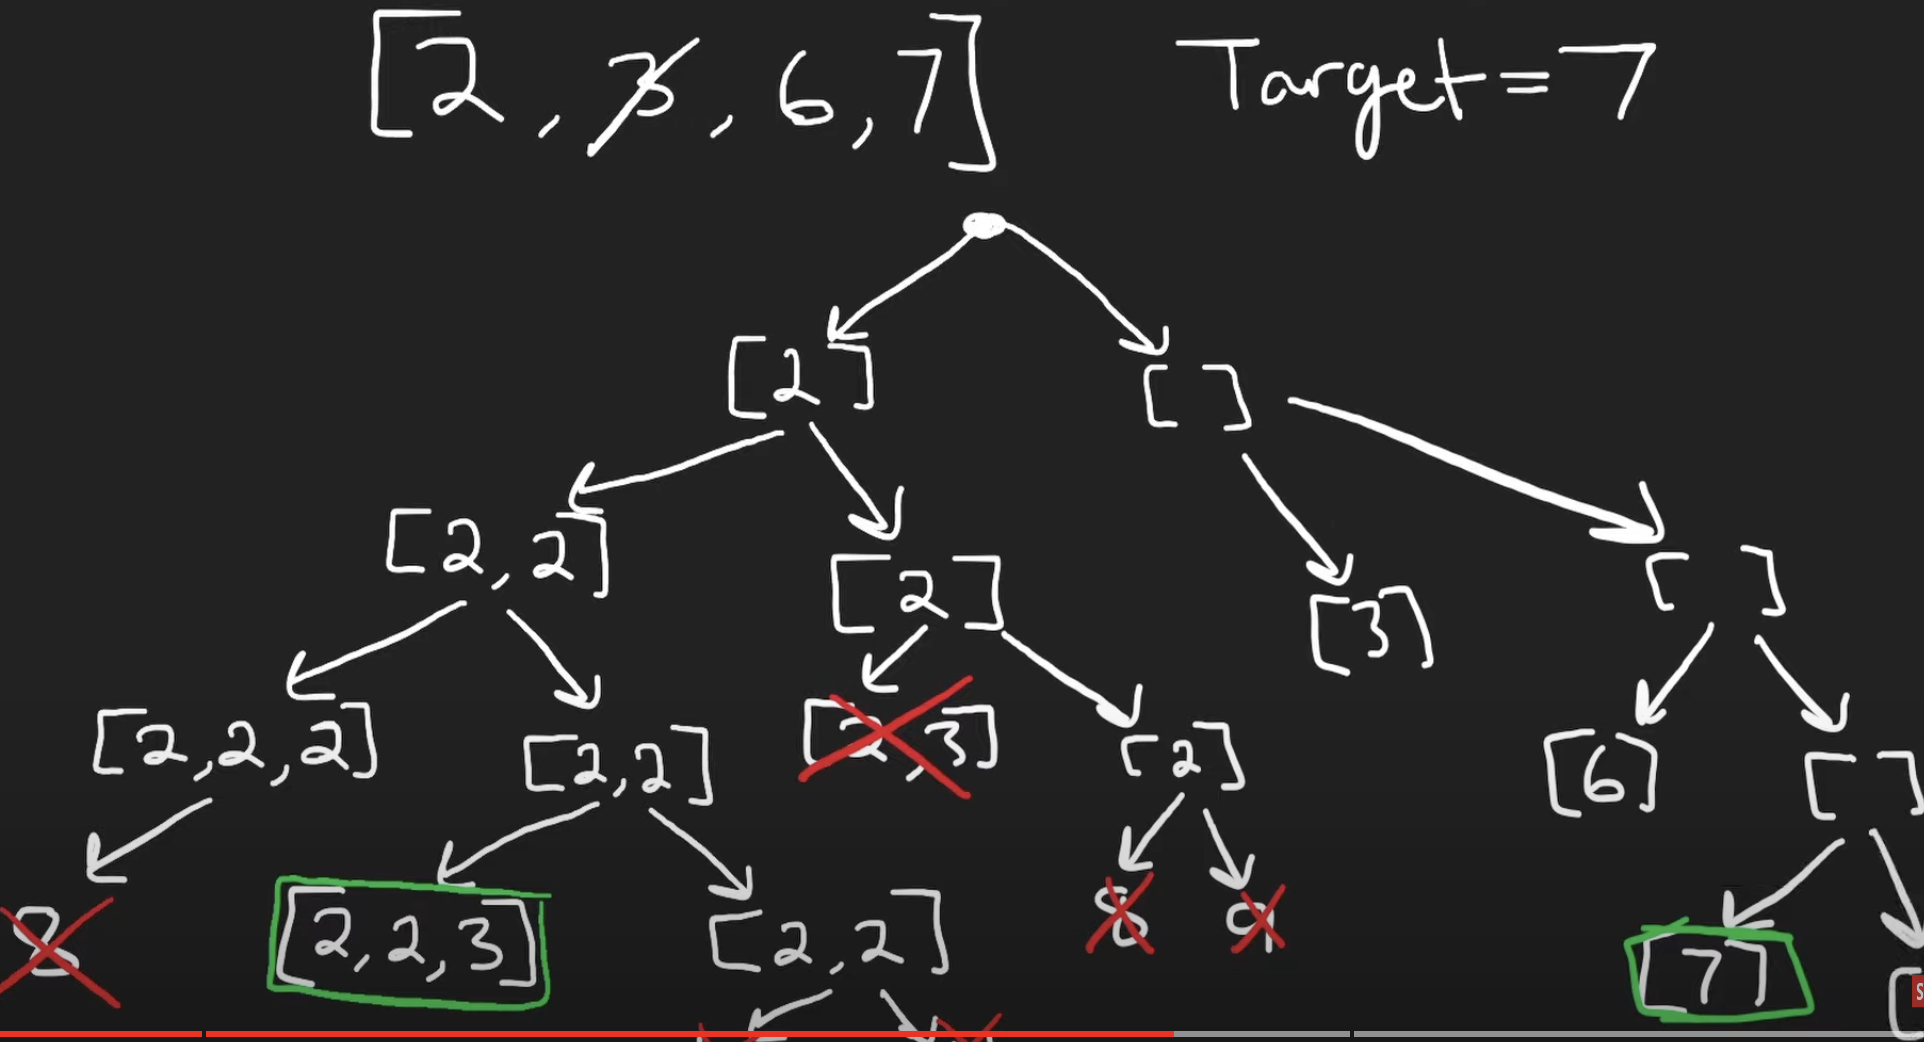 [2, 3, 6, 7] Target=7
[2] []
[2,2] [2] [3] []
[2,2,2] [2,2] [2,3] [2] [6] []
8 [2,2,3] [2,2] 8 9 [7] [
S